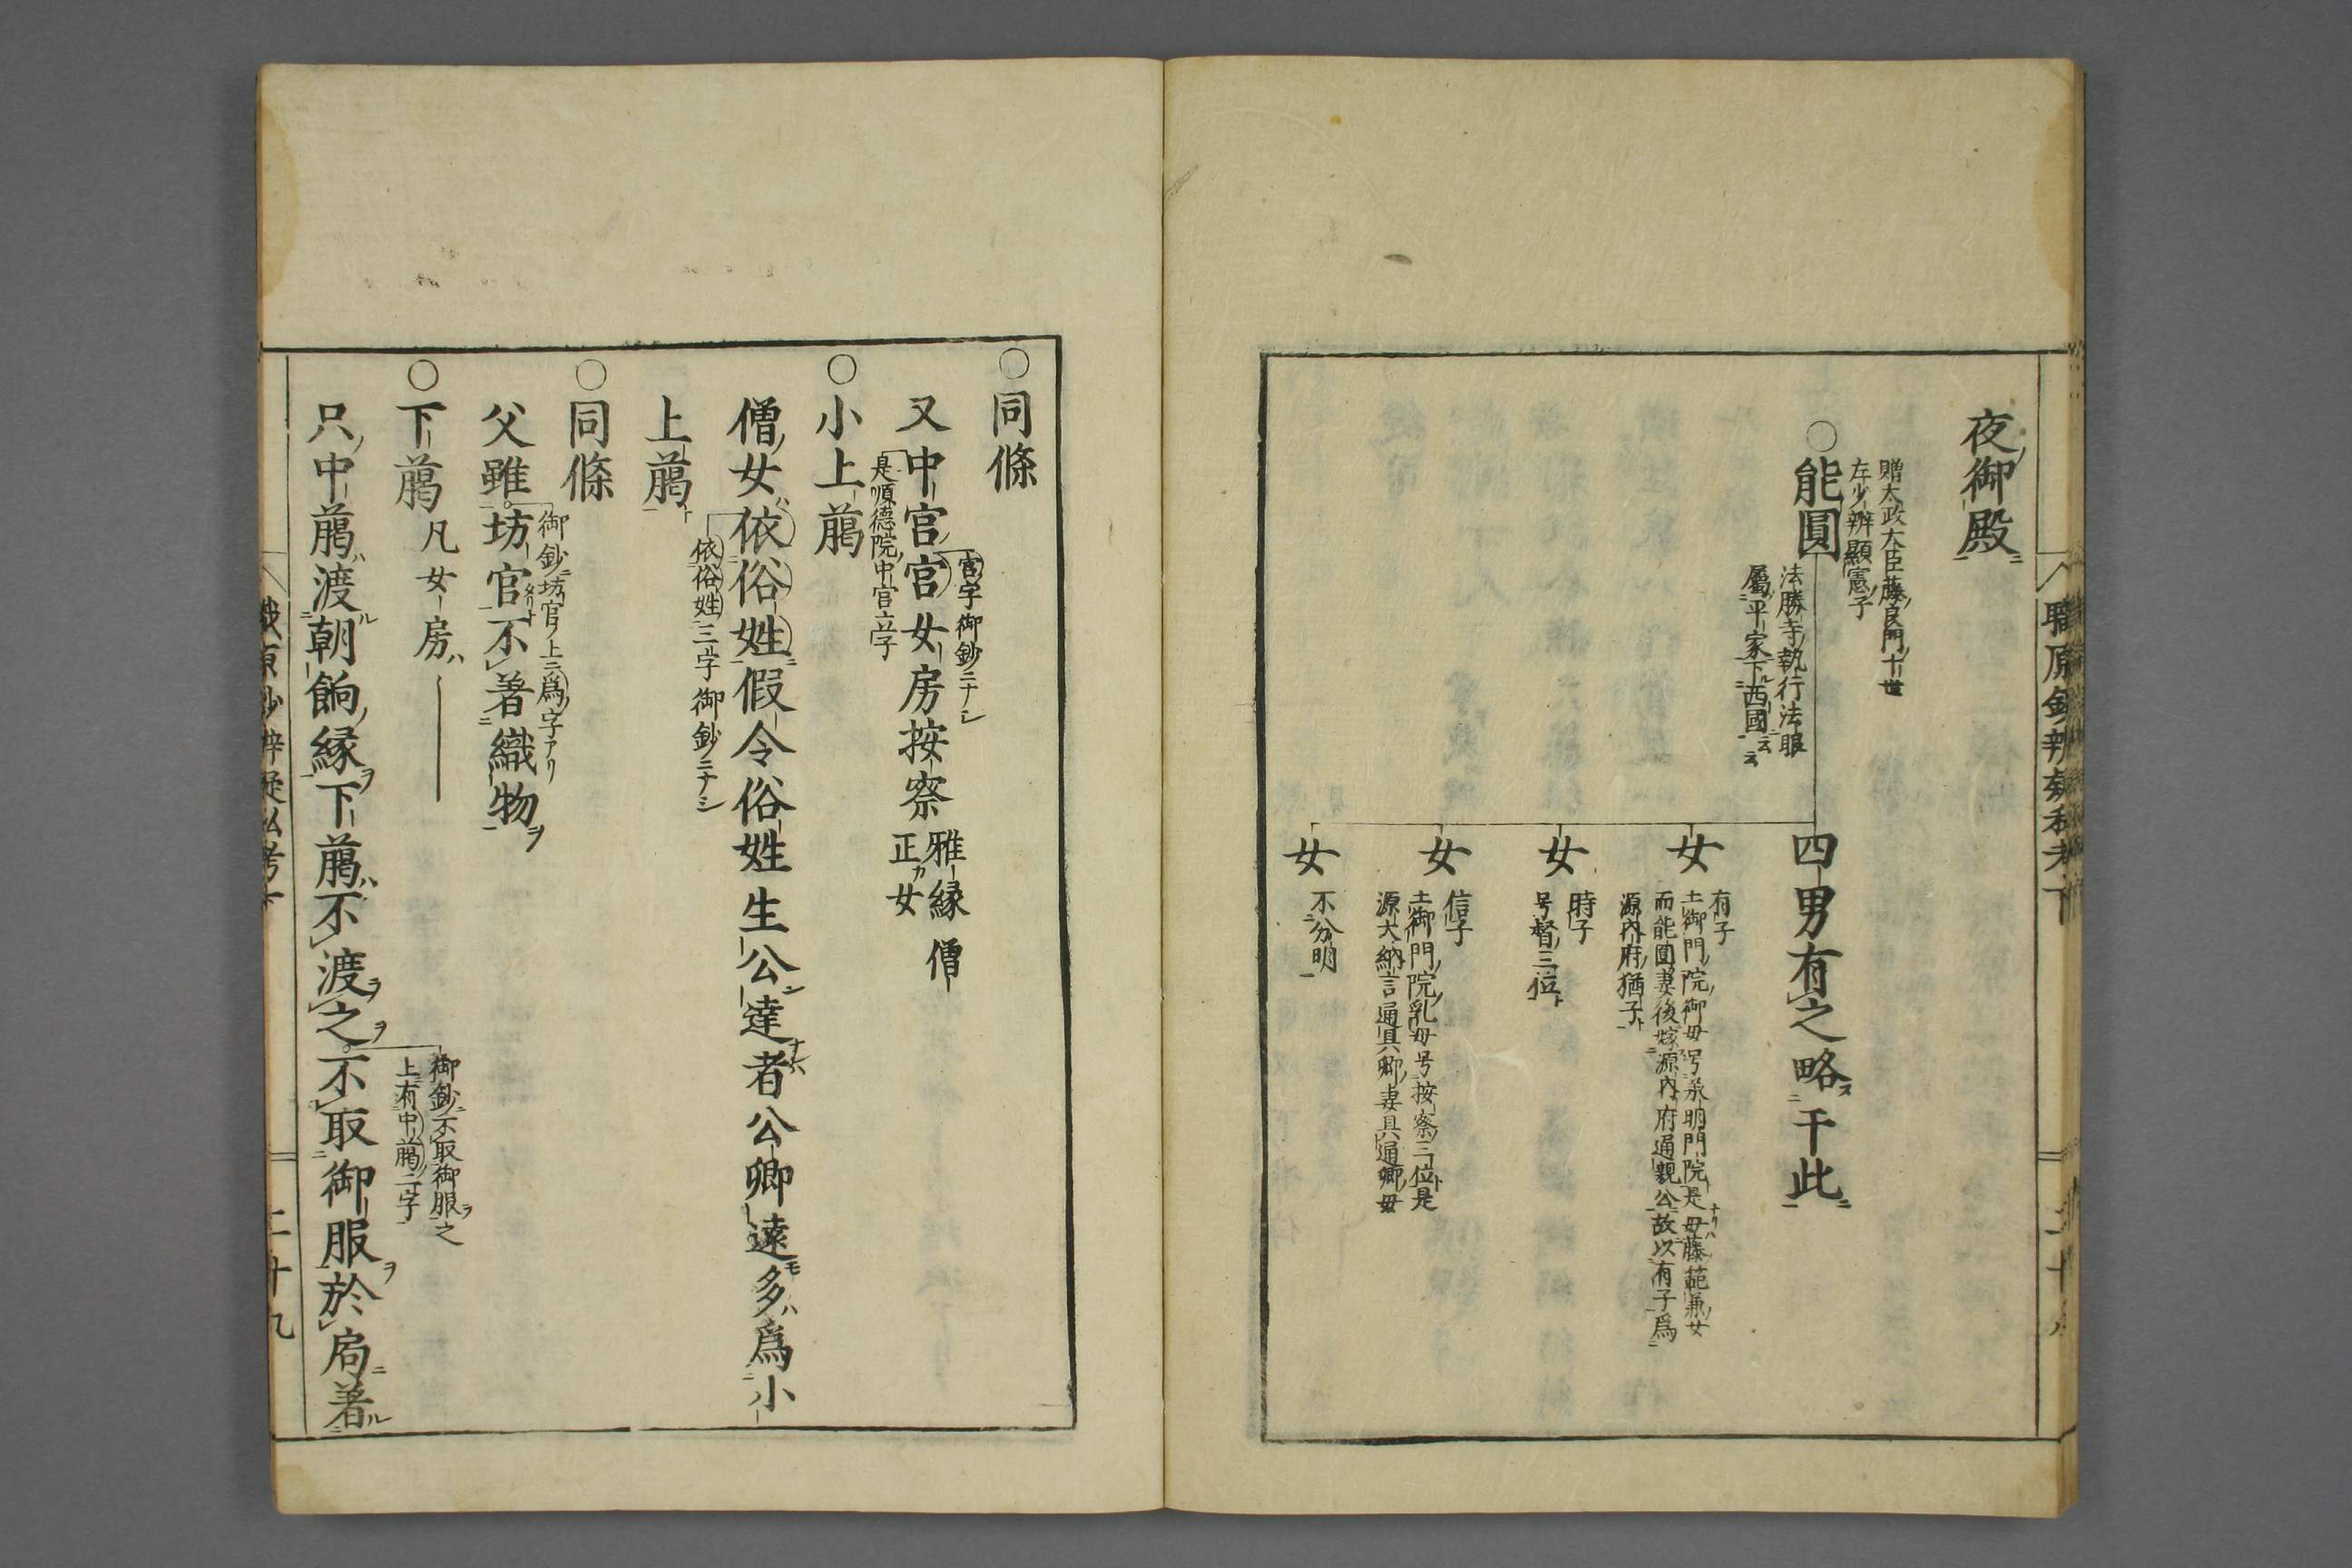 夜御殿
贈太政大臣藤良門十世
左少辨顯憲子
○能圓
法勝寺執行法眼
屬平家下西國云云
四男有之略于此
女
有子
土御門院御母号承明門院是母藤範兼女
而能圓妻後嫁源內府通親公故以有子爲
源內府猶子
女
時子
号督三位
女
信子
土御門院乳母号按察三位是
源大納言通具卿妻具通卿母
女
不分明
職原鈔辨疑私考下
○同條
官字御鈔ニナシ
又中官官女房按察雅縁僧正女
是順德院中官立字
○小上﨟
僧女依俗姓假令俗姓生公達者公卿遠多爲小
依俗姓三字御鈔ニナシ
上﨟
○同條
御鈔坊官ノ上ニ爲字アリ
父雖坊官不著織物ヲ
○下﨟凡女房
御鈔不取御服之
上有中﨟二字
只中﨟渡朝餉縁下﨟不渡之不取御服於局著
二十九